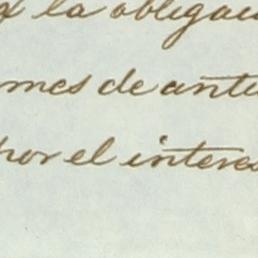 la obligaci
mes de ante
por el interes